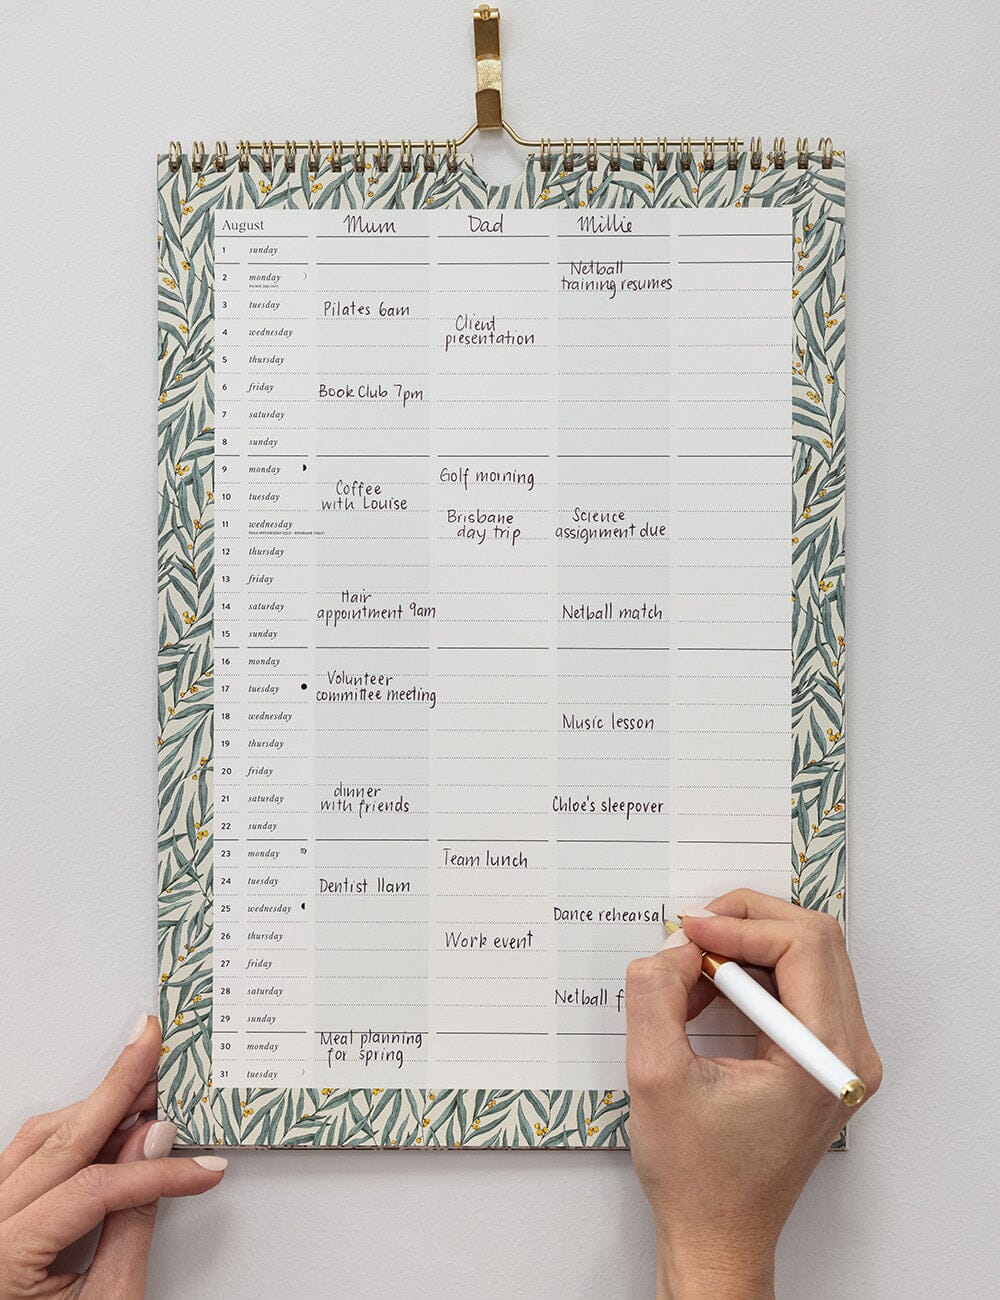 August Mum Dad Millie
1 sunday
2 monday Netball
training resumes
PICNIC DAY (NT)
3 tuesday Pilates 6am
4 wednesday Client
presentation
5 thursday
6 friday Book Club 7pm
7 saturday
8 sunday
9 monday Golf morning
10 tuesday Coffee
with Louise
11 wednesday Brisbane Science
day trip assignment due
12 thursday
13 friday
14 saturday Hair
appointment 9am Netball match
15 sunday
16 monday
17 tuesday Volunteer
committee meeting
18 wednesday Music lesson
19 thursday
20 friday
21 saturday dinner
with friends Chloe's sleepover
22 sunday
23 monday Team lunch
24 tuesday Dentist 11am
25 wednesday Dance rehearsal
26 thursday Work event
27 friday
28 saturday Netball f
29 sunday
30 monday Meal planning
for spring
31 tuesday